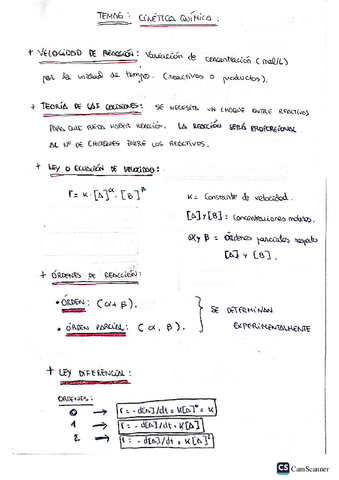 TEMA 6: CINÉTICA QUÍMICA:
+ VELOCIDAD DE REACCIÓN: Variación de concentración (mol/L)
por la unidad de tiempo. (reactivos o productos).
+ TEORÍA DE LAS COLISIONES: SE NECESITA UN CHOQUE ENTRE REACTIVOS
PARA QUE PUEDA HABER REACCIÓN. LA REACCIÓN SERÁ PROPORCIONAL
AL Nº DE CHOQUES ENTRE LOS REACTIVOS.
+ LEY O ECUACIÓN DE VELOCIDAD:
r = K · [A]^α · [B]^β
K = Constante de velocidad.
[A] y [B] = Concentraciones molares.
α y β = Órdenes parciales respecto
[A] y [B].
+ ÓRDENES DE REACCIÓN:
• ORDEN: (α + β).
• ORDEN PARCIAL: (α, β).
SE DETERMINAN
EXPERIMENTALMENTE
+ LEY DIFERENCIAL:
ORDENES:
0 → r = - d[A]/dt = K[A]^0 = K
1 → r = - d[A]/dt = K[A]
2 → r = - d[A]/dt = K[A]^2
CS CamScanner